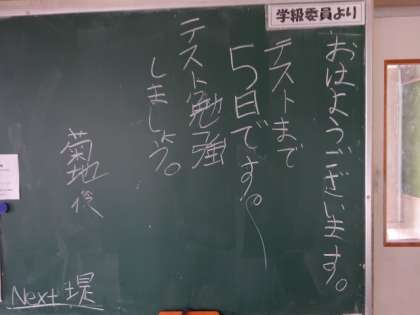 学級委員より
おはようございます。
テストまで
5日です。
テスト勉強
しましょう。
菊地
Next 堤